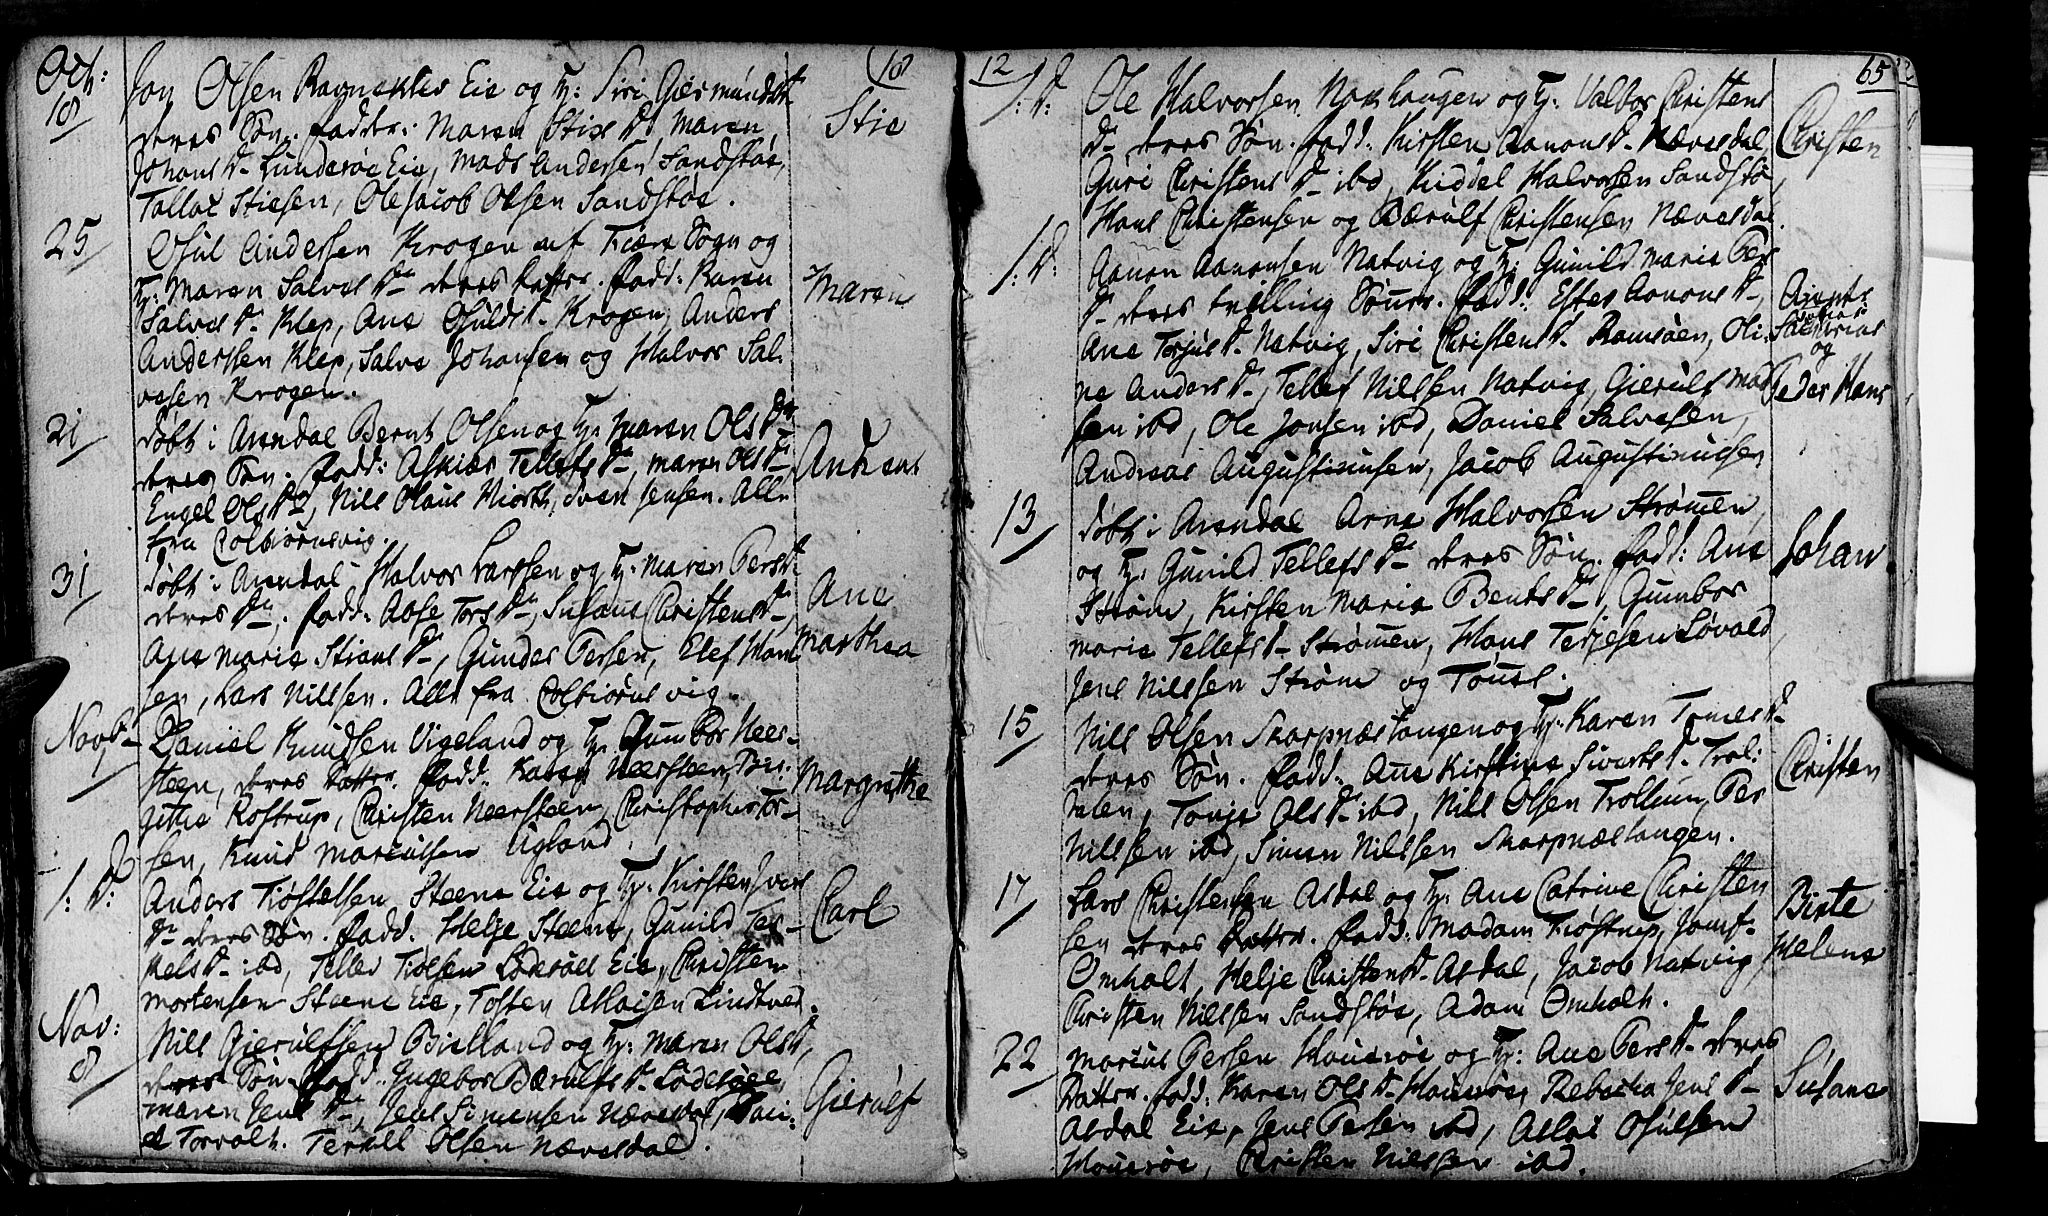 Oct:
18
Jon Olsen Ravneklev Eie og H: Siri Giermunds
deres Søn. fadd.: Maren Stie D. Maren
Johans D. Lunderøe Eie, Mads Andersen Sandstøe,
Tallax Stiesen, Ole Jacob Olsen Sandstøe.
Stie
25
Osul Andersen Krogen af Sogn og
H: Maren Salves D. deres Datter. fadd: Karen
Salves D. Klep, Ane Osulds D. Krogen, Anders
Anderssen Klep, Salve Johansen og Halvor Sal-
vesen Krogen.
Maren
21
døbt i Arendal Bernt Olsen og H: Maren Ols D.
deres Søn. fadd: Askier Tellefs D. Maren Ols D.
Engel Ols D., Nils Olaus Hiorth, Sven Jensen. Alle
fra Colbiørnsvig.
Andreas
31
døbt i Arendal Halvor Larssen og H: Maren Pers D.
deres D. fadd: Aase Tors D., Susane Christens D.,
Ane Marie Stians D., Gunder Persen, Elef Han
sen, Lars Nilssen. Alle fra Colbiørnsvig.
Ane
Marthea
Novb.
1
Daniel Knudsen Vigeland og H: Gumbor Neer-
steen, deres Datter. fadd: Karen Neersteen, Bir-
gitthe Rostrup, Christen Neersteen, Christopher Tor-
sen, Knud Mariussen Ugland.
Margrethe
1: D:
Anders Tiøstelsen Steene Eie og H: Kirsten Ivers
D. deres Søn. fadd. Helje Steene, Gunild Ter-
kels D. ibd, Tellev Tiølsen Eie, Christen
Mortensen Steene Eie, Tosten Atlaksen Lindtved.
Carl
Nov:
8
Nils Gierulfsen Bielland og H: Maren Ols D,
deres Søn. fadd. Ingebor Bærulfs D. Lødesøle,
Maren Jens D., Jens Simensen Nævesdal, Dani-
el Torvolt. Terkill Olsen Nævesdal.
Gierulf
18
12
65
1: D:
Ole Halvorsen Noxhaugen og H: Valbor Christens
D. deres Søn. fadd: Kirsten Aanons D. Nævesdal,
Guri Christens D. ibd, Kiddel Halvorsen Sandstø,
Hans Christensen og Bærulf Christensen Nævesdal.
Christen
1: D:
Aanon Aanonsen Natvig og H: Gunild Marie Pers
D. deres tvilling Sønner. fadd: Ester Aanons D.,
Ane Torjus D. Natvig, Siri Christens D. Ramsøen, Oli-
ne Anders D., Tellef Nilssen Natvig, Gierulf Mad
sen ibd, Ole Jonsen ibd, Daniel Salvesen,
Andreas Augustinusen, Jacob Augustinusen
og
Peder Hans
13
døbt i Arendal Arne Halvorsen Strømen,
og H: Gunild Tellefs D. deres Søn. fadd: Ane
Strøm, Kirsten Marie Bents D., Gumbor
Marie Tellefs D. Strømen, Hans Terjesen Løvold,
Jens Nilssen Strøm og
Johan
15
Nils Olsen Skarpnæstangen og H: Karen Tomes D.
deres Søn. fadd: Ane Kirstine Siverts D. Trol-
nien, Tonje Ols D. ibd, Nils Olsen Trolnien, Per
Nilssen ibd, Simen Nilssen Skarpnæstangen.
Christen
17
Lars Christensen Asdal og H: Ane Catrine Christen
sen deres Datter. fadd: Madam Tiøstrup, Jomf.
Omholt, Helje Christens D. Asdal, Jacob Natvig,
Christen Nilssen Sandstøe, Adam Omholt.
Birte
Helene
22
Marius Persen Havesøe og H: Ane Pers D. deres
Datter. fadd: Karen Ols D. Havesøe, Rebecka Jens D.
Asdal Eie, Jens Persen ibd, Atlax Osulsen
Havesøe, Christen Nilssen ibd.
Susane